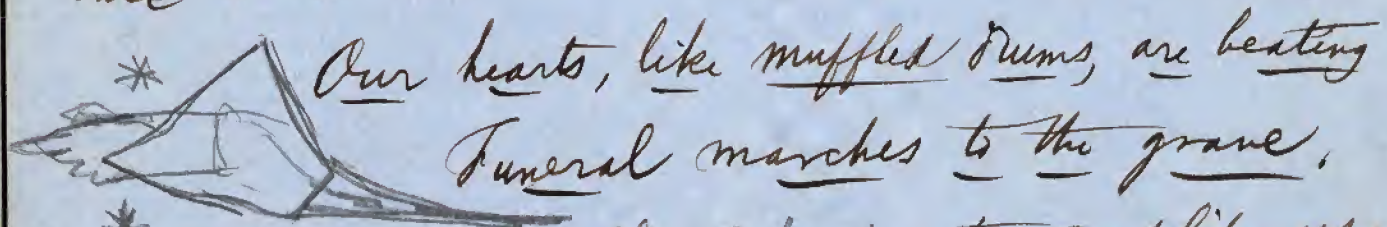 Our hearts, like muffled drums, are beating
Funeral marches to the grave.